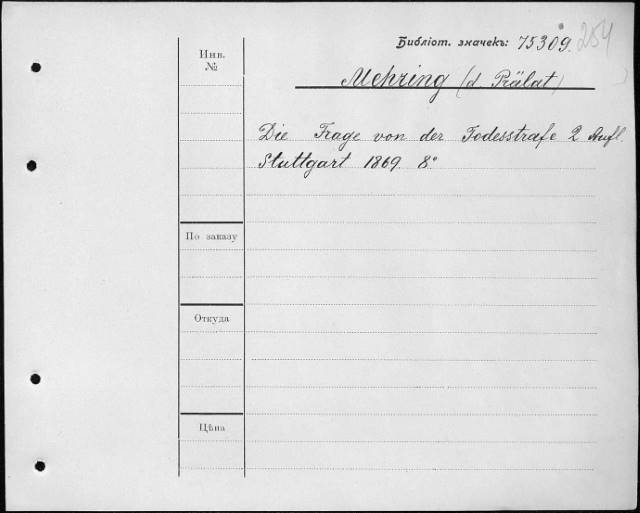 Библіот. значекъ: 75309. 254
Инв.
№
Mehring (d. Prälat)
Die Frage von der Todesstrafe 2 Aufl.
Stuttgart 1869. 8°
По заказу
Откуда
Цѣна